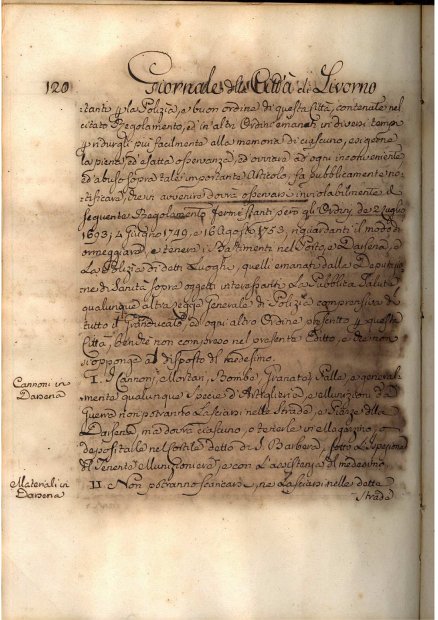 120 Giornale della Città di Livorno
tanti p la Polizia, e buon ordine di questa Città, contenute nel
citato Regolamento, ed in altri Ordini emanati in diversi tempi
p ridurgli più facilmente alla memoria di ciascuno, esigerne
la piena, ed esatta osservanza, ed ovviare ad ogni inconveniente
ed abuso sopra tale importante Articolo, fa pubblicamente no-
tificare, che in avvenire dovrà osservarsi inviolabilmente il
seguente Regolamento, fermi stanti però gli Ordini de 2 Luglio
1693, 4 Giugno 1749, e 16 Agosto 1753, riguardanti il modo di
ormeggiare, e tenere i Bastimenti nel Porto, e Darsena, e
La Polizia di detti Luoghi, quelli emanati dalla Deputazio-
ne di Sanità sopra oggetti interessanti la Pubblica Salute
qualunque altra Legge Generale di Polizia comprensiva di
tutto il Granducato, ed ogni altro Ordine p questa
Città, benchè non compreso nel presente Editto, e che non
si opponga al disposto del medesimo.
Cannoni in Darsena
I. I Cannoni, Mortari, Bombe, Granate, Palle, e general-
mente qualunque specie d'Artiglieria, e Munizioni da
Guerra non potranno lasciarsi nelle Strade, e Piazze della
Darsena, ma dovrà ciascuno, o tenerle in Magazzino, o
depositarle nel Cortile detto di S. Barbera, sotto l'Ispezione
del Tenente Munizioniere, e con l'assistenza del medesimo.
Materiali in Darsena
II. Non potranno scaricarsi, ne lasciarsi nelle dette
Strade